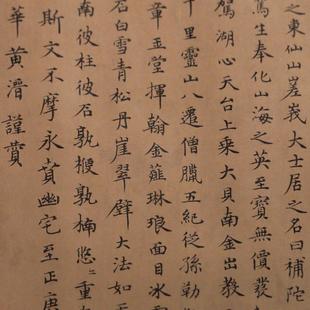 之東仙山嵳義大士居之名曰補陀
篤生奉化山海之英至寶無價發
駕湖心天台上乘大貝南金出教
十里靈山八遷僧臘五紀從孫勒
章玉堂揮翰金薤琳琅面目冰雪
石白雪青松丹崖翠壁大法如
南彼柱彼石孰楩孰楠愍〻重
斯文不摩永賁幽宅至正庚
華黄溍謹賛